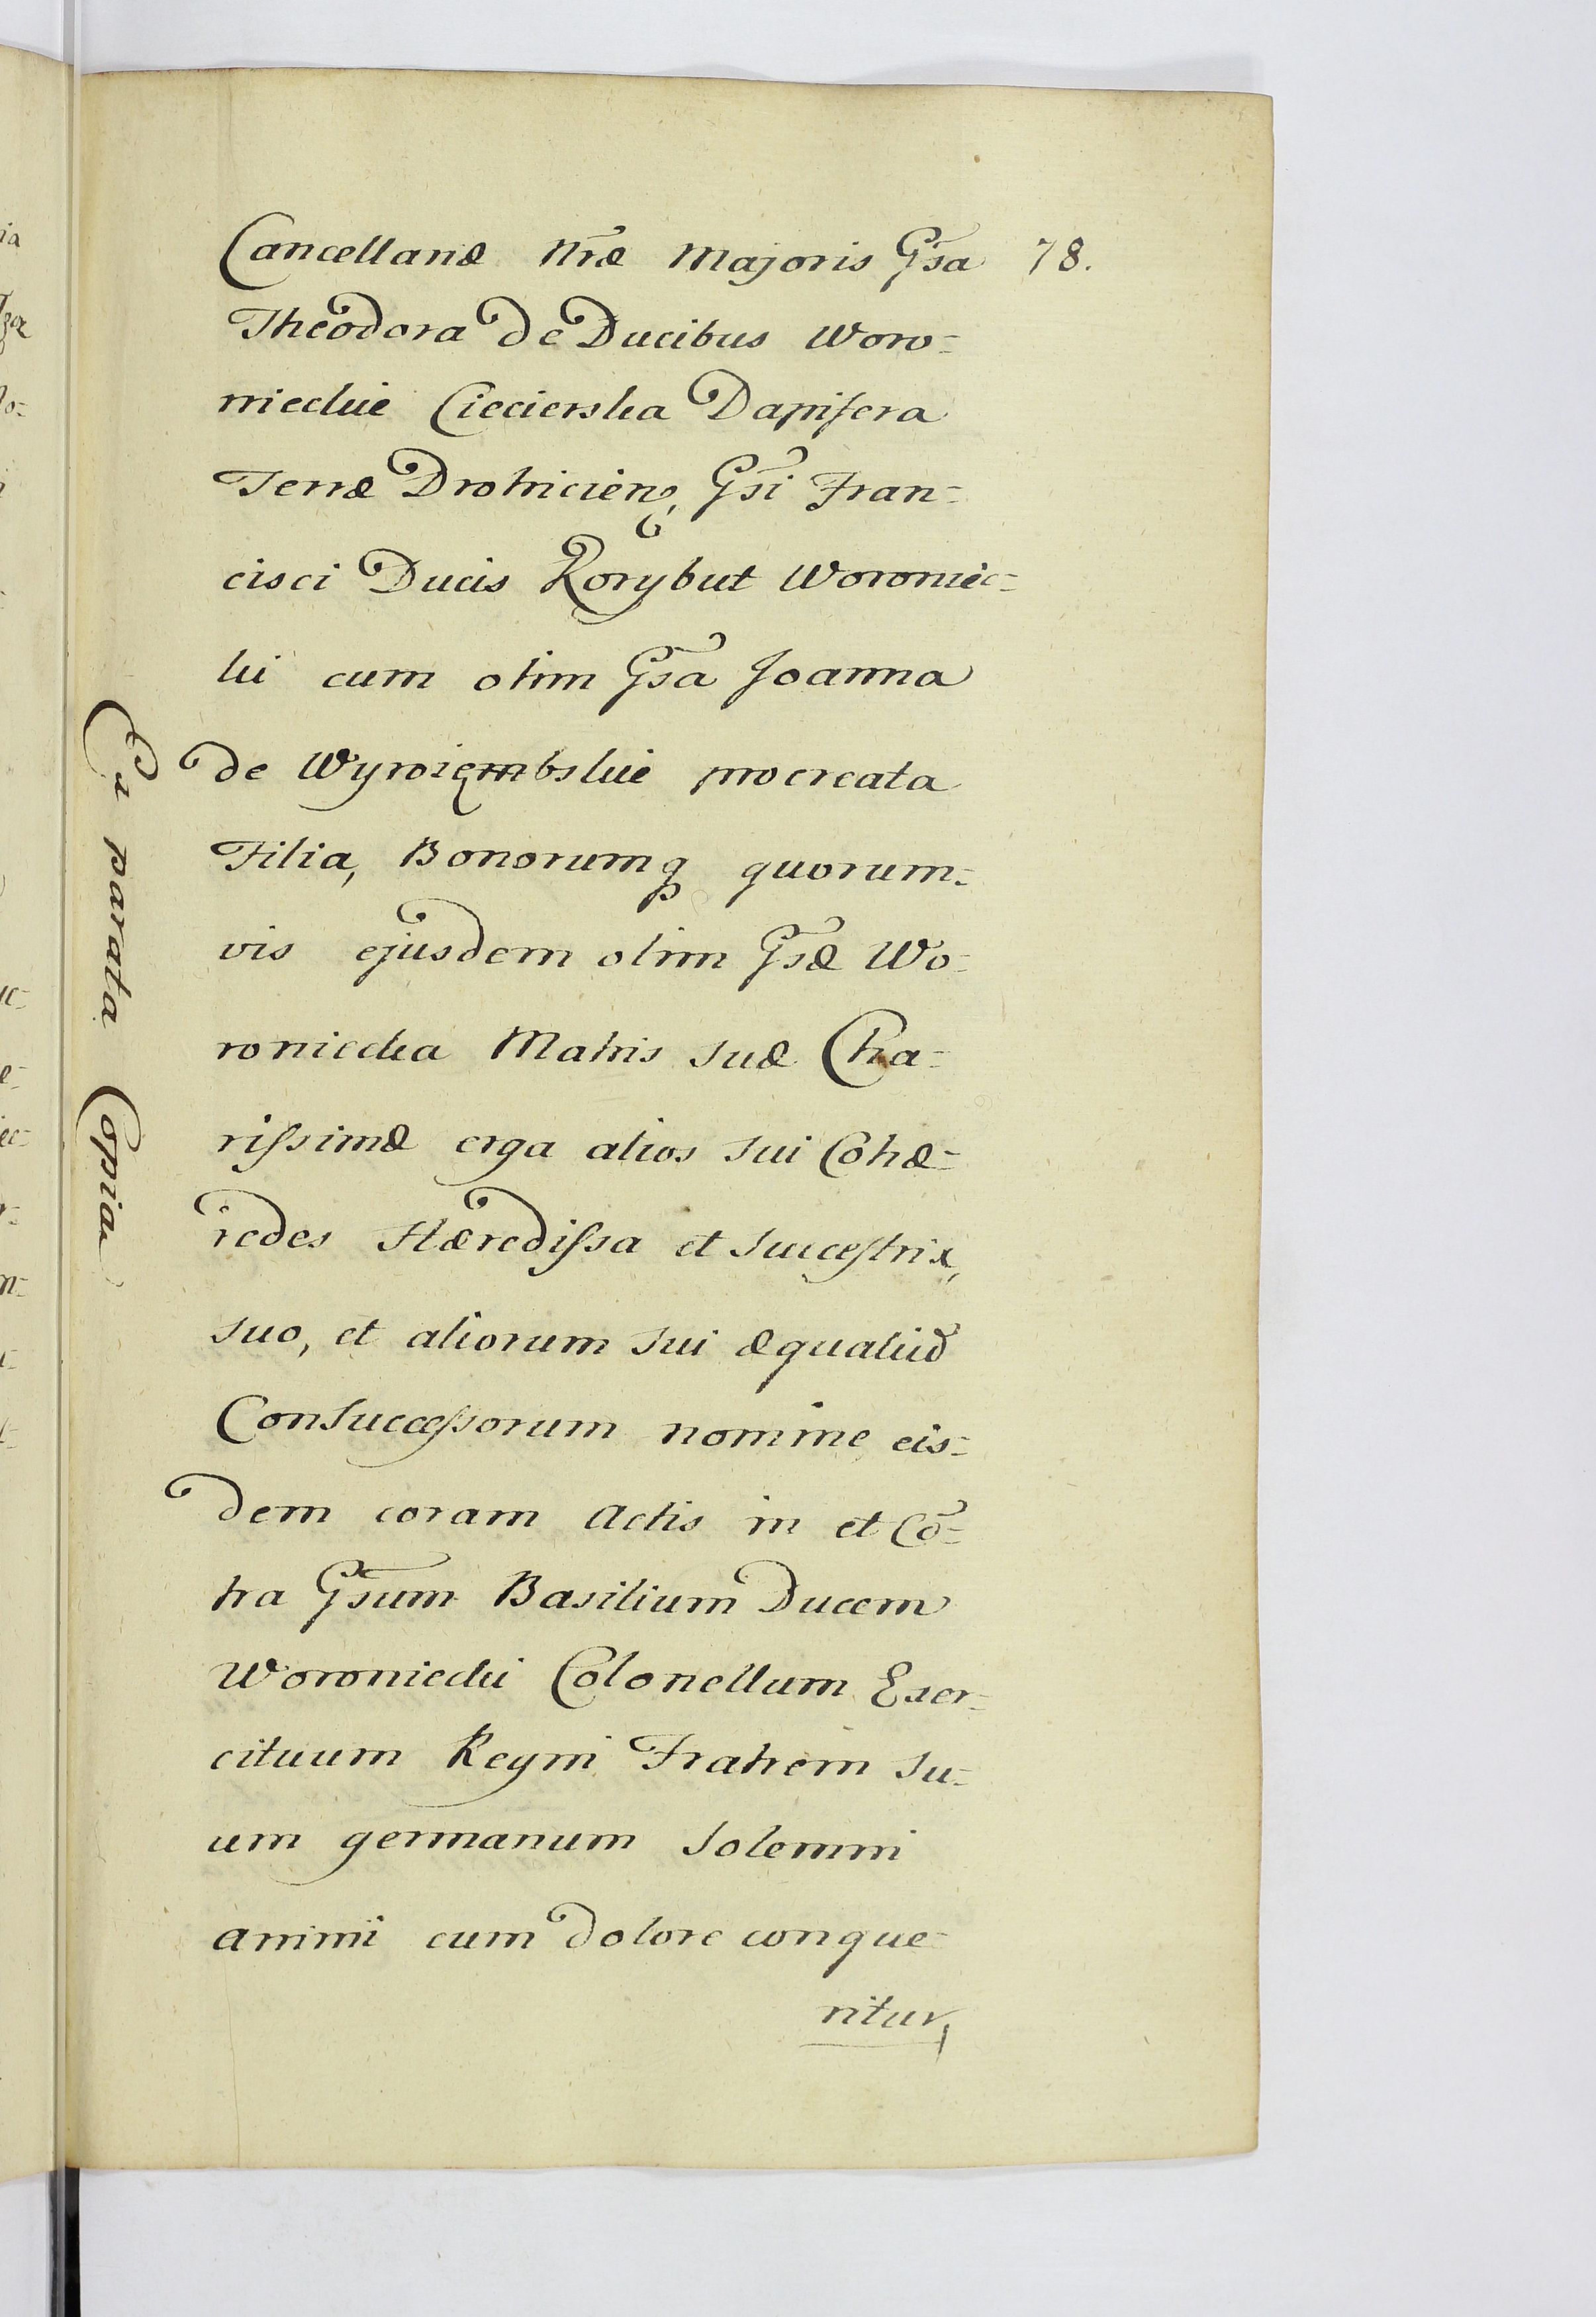 Cancellariæ Nræ Majoris Gsa 78.
Theodora de Ducibus Woro=
nieckie Ciecierska Dapifera
Terræ Drohiciens, Gsi Fran=
cisci Ducis Korybut Woroniec=
ki cum olim Gsa Joanna
de Wyroiembskie procreata
Filia, Bonorumq quorum=
vis ejusdem olim Gsæ Wo=
roniecka Matris suæ Cha=
rissimæ erga alios sui Cohæ=
redes Hæredissa et succestrix,
suo, et aliorum sui æqualiũ
Consuccessorum nomine eis=
dem coram Actis in et Cõ=
tra Gsum Basilium Ducem
Woroniecki Colonellum Exer=
cituum Regni Fratrem su=
um germanum solemni
animi cum dolore conque=
ritur,
Ei parata Copia